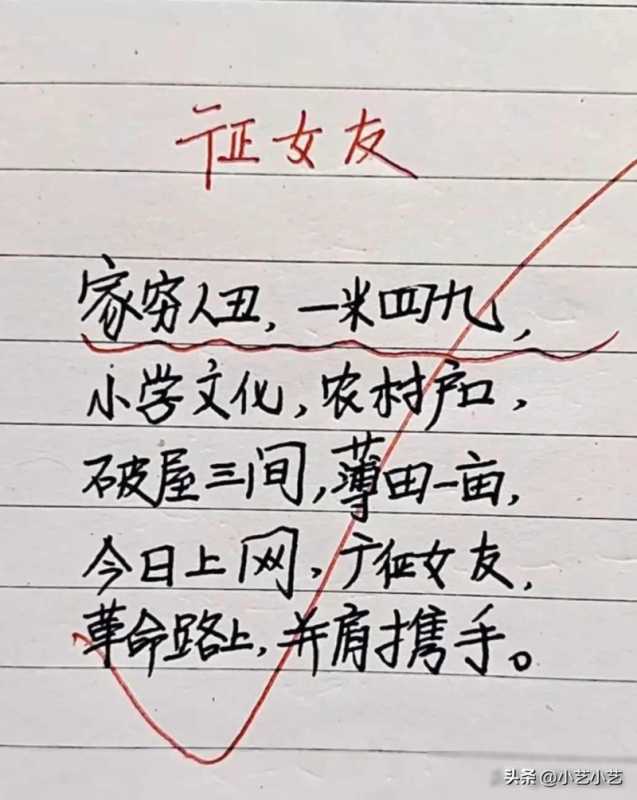 征女友
家穷人丑，一米四九，
小学文化，农村户口，
破屋三间，薄田一亩，
今日上网，广征女友，
革命路上，并肩携手。
头条 @小艺小艺